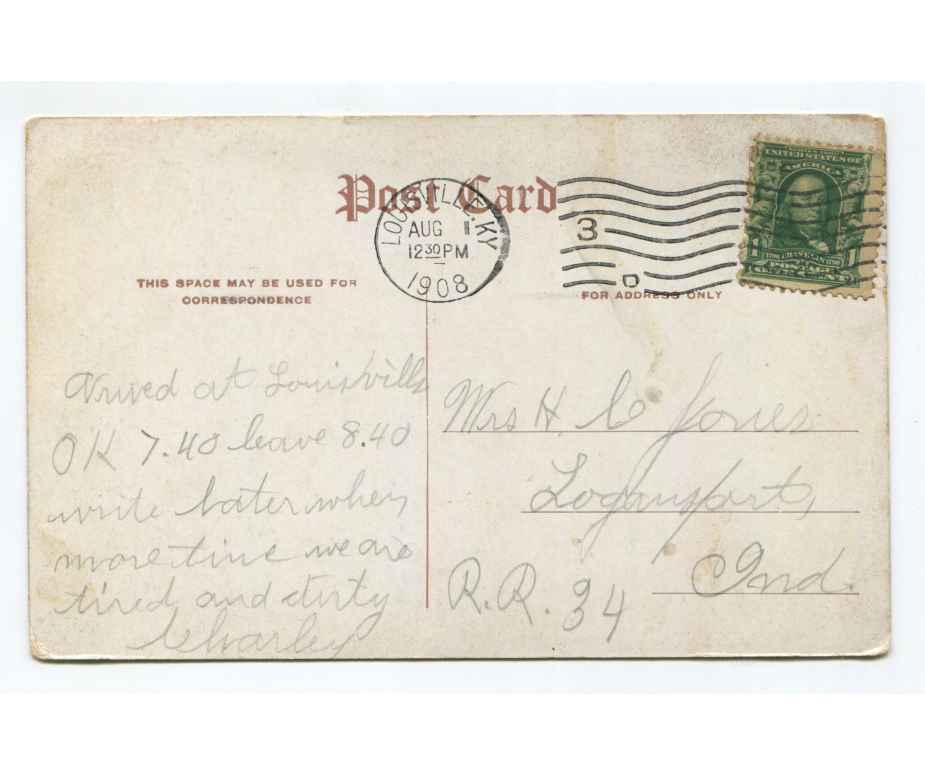 Post Card
LOUISVILLE, KY.
AUG 1
12 30 PM
1908
3
D
UNITED STATES OF
AMERICA
1 1
POSTAGE
THIS SPACE MAY BE USED FOR
CORRESPONDENCE
FOR ADDRESS ONLY
Arrived at Louisville
OK 7.40 leave 8.40
write later when
more time we are
tired and dirty
Charley
Mrs H. C Jones
Logansport,
Ind.
R.R. 34